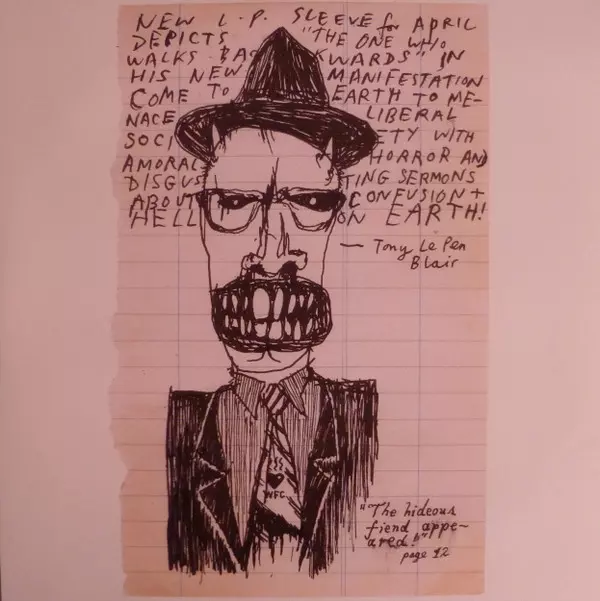 NEW L.P. SLEEVE for APRIL
DEPICTS "THE ONE WHO
WALKS BACKWARDS" IN
HIS NEW MANIFESTATION
COME TO EARTH TO ME-
NACE LIBERAL
SOCIETY WITH
AMORAL HORROR AND
DISGUSTING SERMONS
ABOUT CONFUSION +
HELL ON EARTH!
— Tony Le Pen
Blair
WFC
"The hideous
fiend appe-
ared!"
page 12